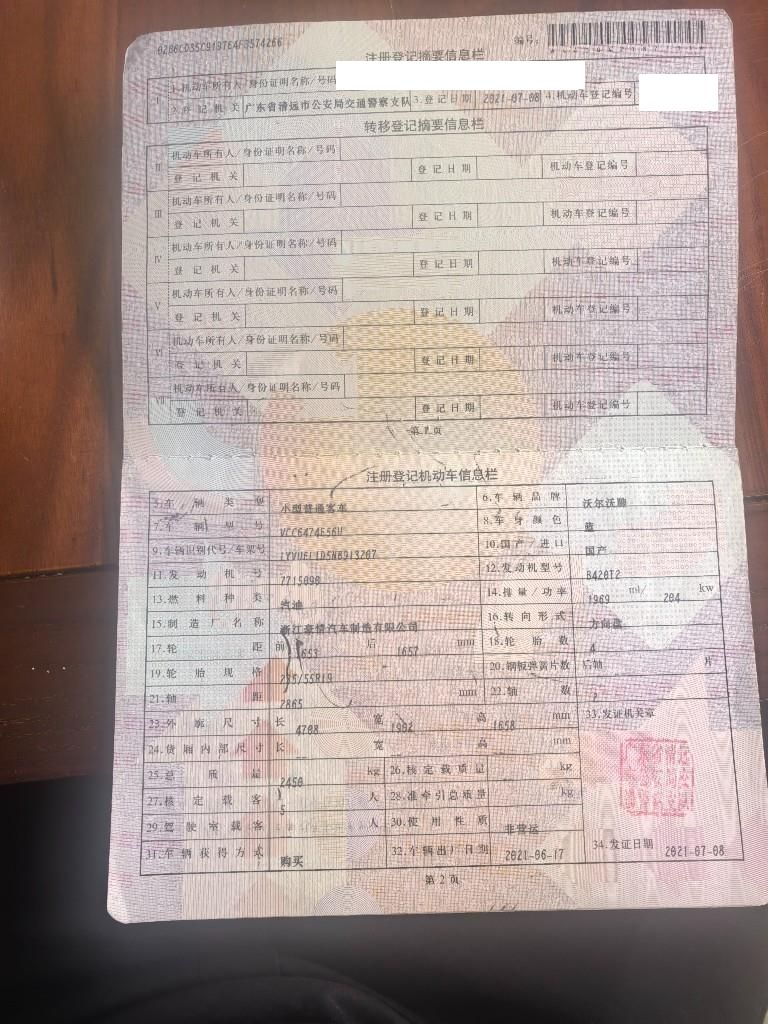 编号:
注册登记摘要信息栏
I 1.机动车所有人/身份证明名称/号码
2.登记机关 广东省清远市公安局交通警察支队 3.登记日期 2021-07-08 4.机动车登记编号
转移登记摘要信息栏
II 机动车所有人/身份证明名称/号码
登记机关 登记日期 机动车登记编号
III 机动车所有人/身份证明名称/号码
登记机关 登记日期 机动车登记编号
IV 机动车所有人/身份证明名称/号码
登记机关 登记日期 机动车登记编号
V 机动车所有人/身份证明名称/号码
登记机关 登记日期 机动车登记编号
VI 机动车所有人/身份证明名称/号码
登记机关 登记日期 机动车登记编号
VII 机动车所有人/身份证明名称/号码
登记机关 登记日期 机动车登记编号
第1页
注册登记机动车信息栏
5.车辆类型 小型普通客车 6.车辆品牌 沃尔沃牌
7.车辆型号 VCC6474E56H 8.车身颜色 蓝
9.车辆识别代号/车架号 10.国产/进口 国产
11.发动机号 7715090 12.发动机型号 B420T2
13.燃料种类 汽油 14.排量/功率 1969 ml/ 204 kw
15.制造厂名称 浙江豪情汽车制造有限公司 16.转向形式 方向盘
17.轮距 前 1653 后 1657 mm 18.轮胎数 4
19.轮胎规格 235/55R19 20.钢板弹簧片数 后轴 片
21.轴距 2865 mm 22.轴数 2
23.外廓尺寸 长 4708 宽 1902 高 1658 mm 33.发证机关章
24.货厢内部尺寸 长 -- 宽 -- 高 -- mm
25.总质量 2450 kg 26.核定载质量 -- kg
27.核定载客 5 人 28.准牵引总质量 -- kg
29.驾驶室载客 -- 人 30.使用性质 非营运
31.车辆获得方式 购买 32.车辆出厂日期 2021-06-17 34.发证日期 2021-07-08
第2页